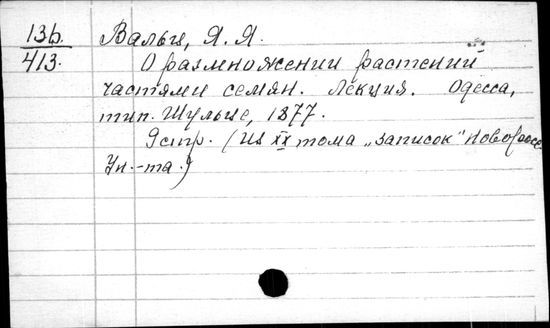 13б. Вальц, Я. Я.
413. О размножении растений
частями семян. Лекция. Одесса,
тип. Шульце, 1877.
9 стр. (Из XX тома „Записок" Новоросс.
Ун.-та.)